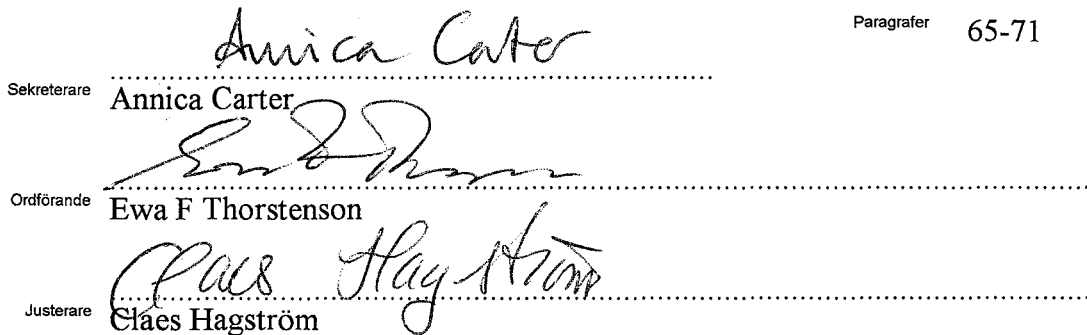 Annica Carter Paragrafer 65-71
Sekreterare Annica Carter
Ewa F Thorstenson
Ordförande Ewa F Thorstenson
Claes Hagström
Justerare Claes Hagström